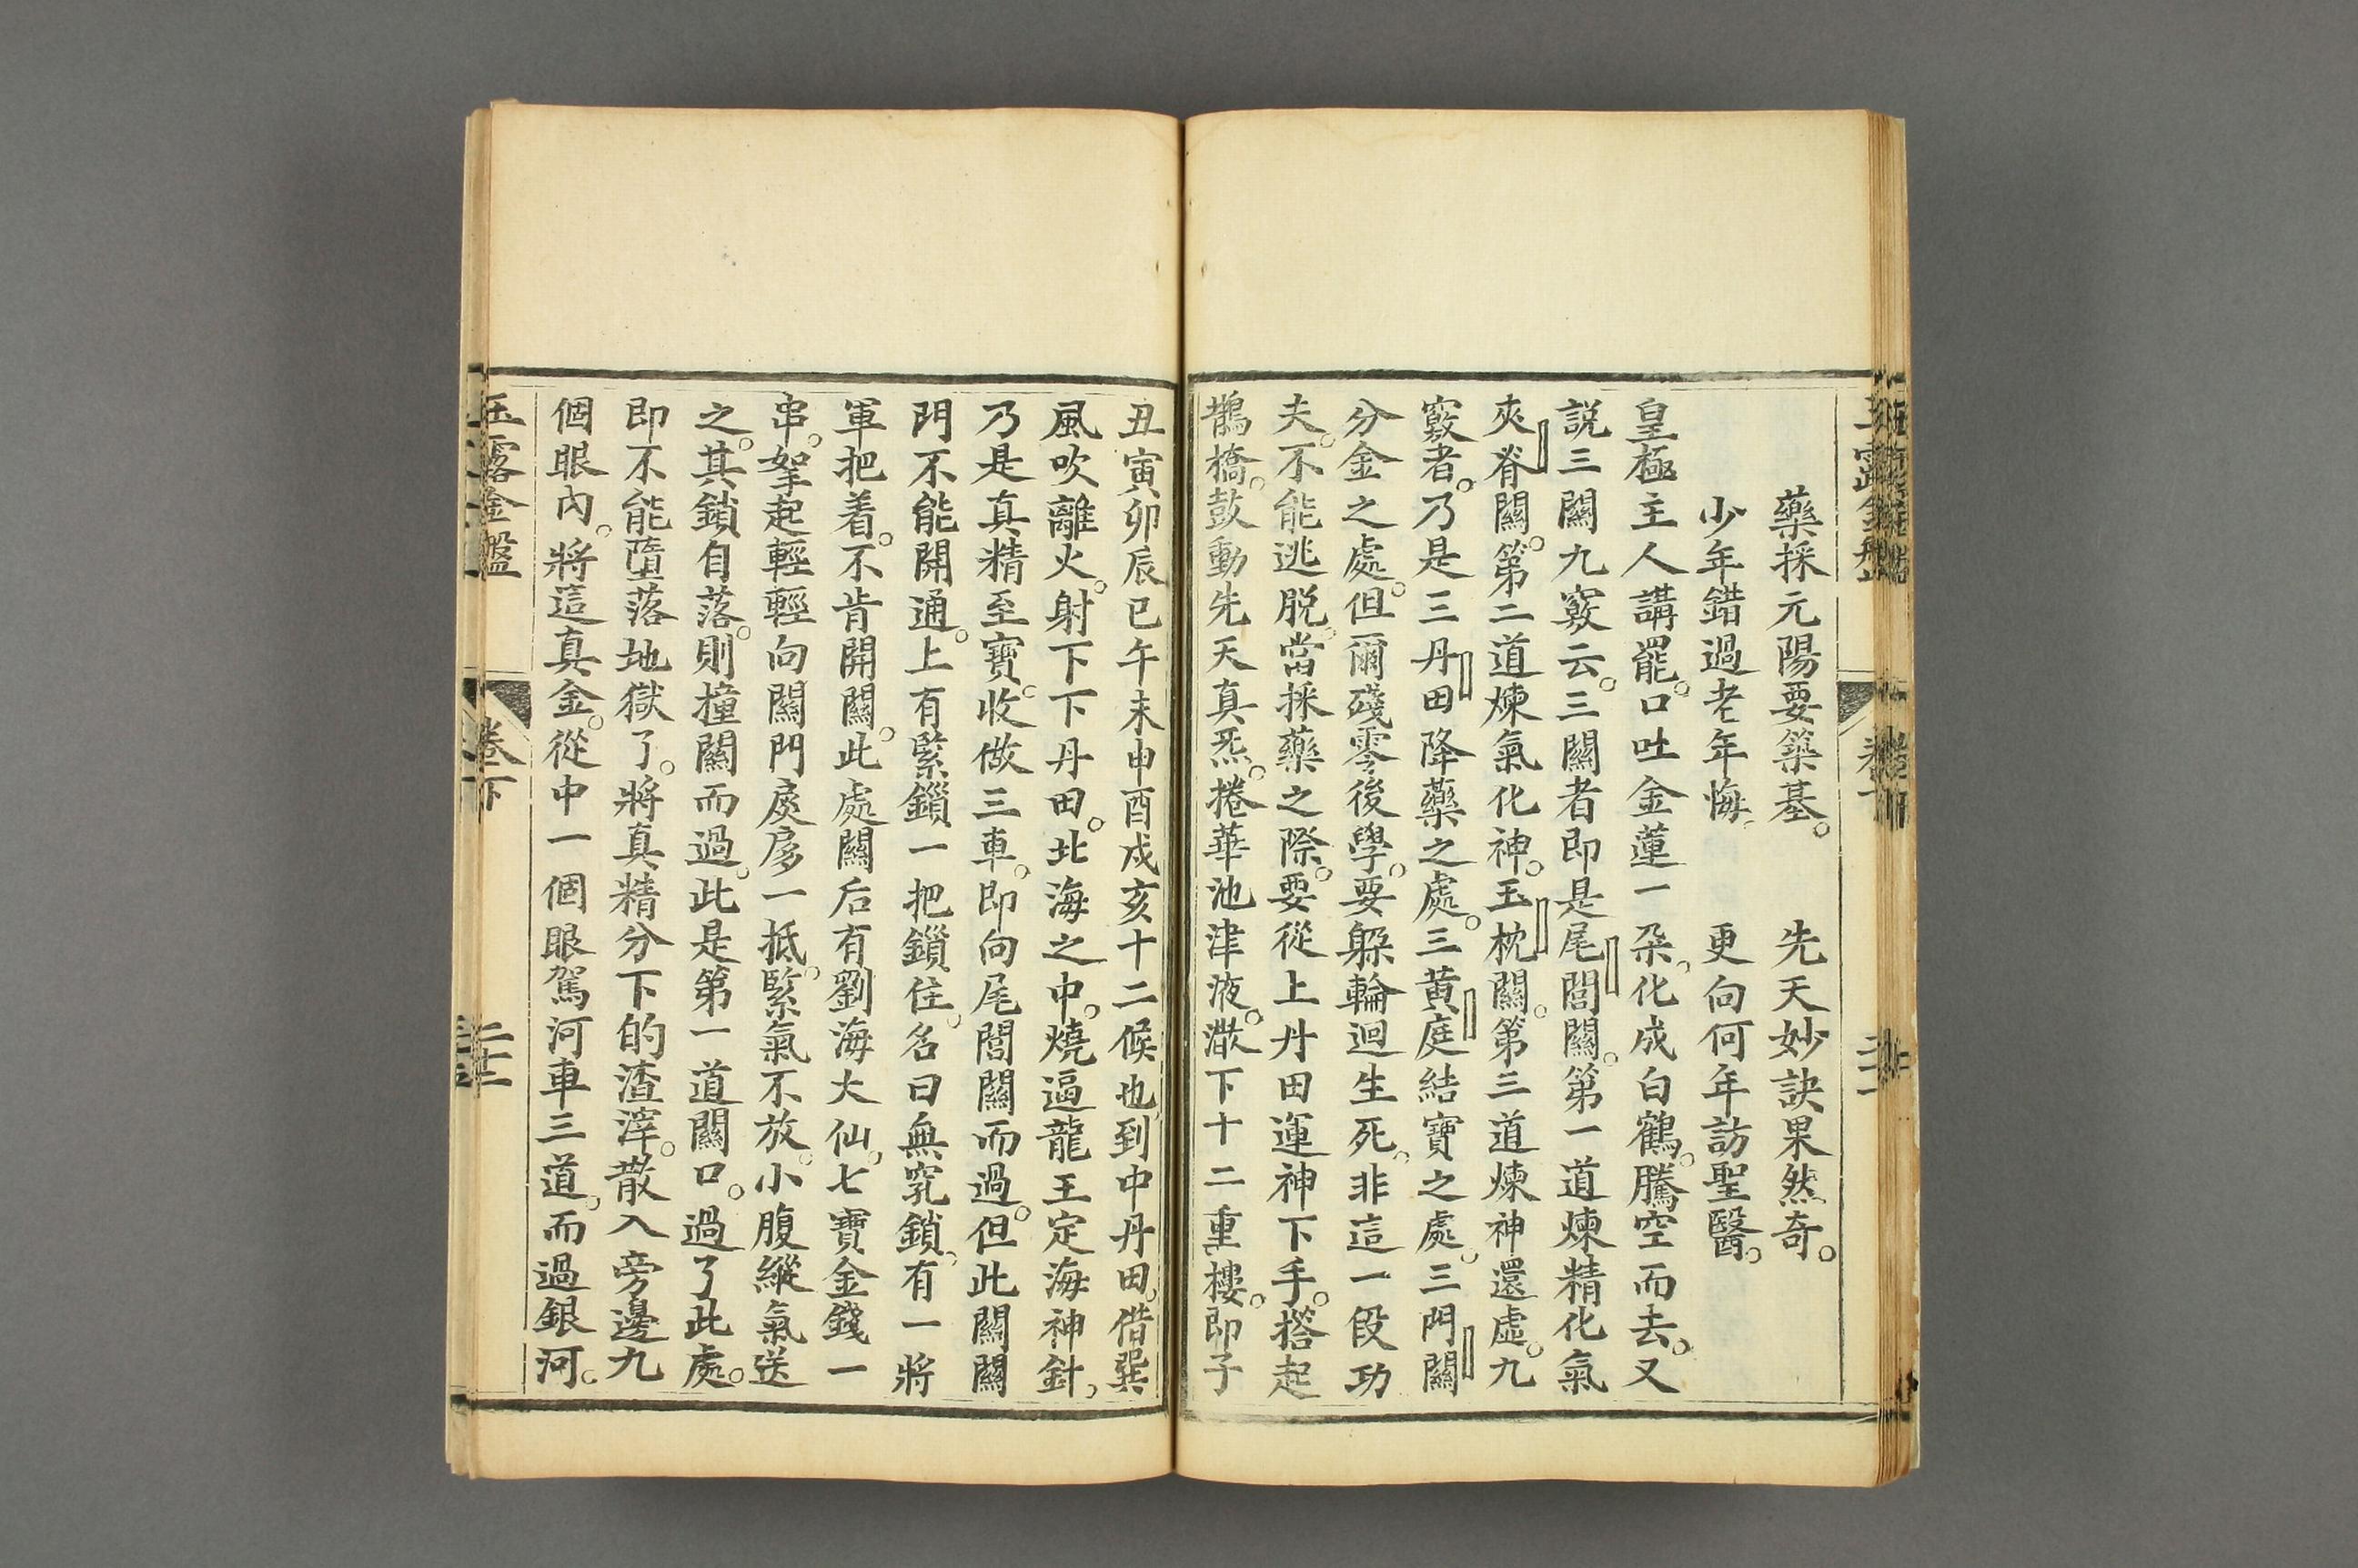 藥採元陽要築基。先天妙訣果然奇。
少年錯過老年悔。更向何年訪聖醫。
皇極主人講罷。口吐金蓮一朶。化成白鶴。騰空而去。又
說三關九竅云。三關者即是尾閭關。第一道煉精化氣
夾脊關。第二道煉氣化神。玉枕關。第三道煉神還虛。九
竅者。乃是三丹田降藥之處。三黃庭結寶之處。三門關
分金之處。但爾殘零後學。要躲輪迴生死。非這一段功
夫。不能逃脫。當採藥之際。要從上丹田運神下手。搭起
鵲橋。鼓動先天真炁。捲華池津液。潵下十二重樓。即子
丑寅卯辰巳午未申酉戌亥十二候也。到中丹田。借巽
風吹離火。射下下丹田。北海之中。燒逼龍王定海神針。
乃是真精至寶。收做三車。即向尾閭關而過。但此關關
門不能開通。上有緊鎖一把鎖住。名曰無穵鎖。有一將
軍把着。不肯開關。此處關后有劉海大仙。七寶金錢一
串。拏起輕輕向關門戾𢩮一抵。緊氣不放。小腹縱氣送
之。其鎖自落。則撞關而過。此是第一道關口。過了此處。
即不能墮落地獄了。將真精分下的渣滓。散入旁邊九
個眼內。將這真金。從中一個眼駕河車三道。而過銀河。
玉露金盤
卷下
二十二